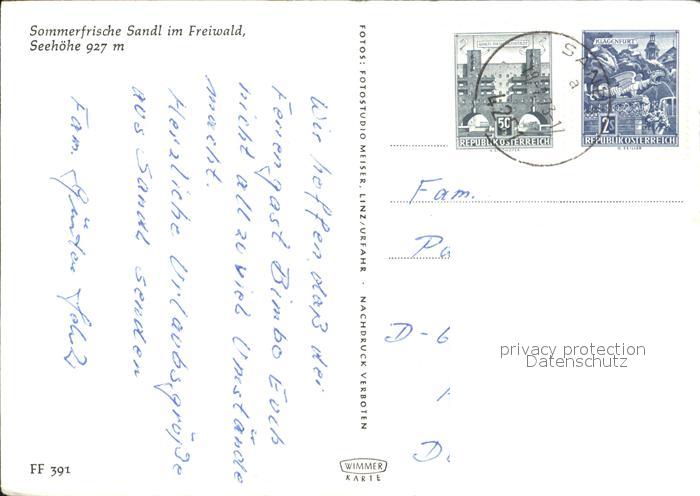 Sommerfrische Sandl im Freiwald,
Seehöhe 927 m
Wir hoffen daß der
Feriengast Bimbo Euch
nicht allzu viel Umstände
macht.
Herzliche Urlaubsgrüße
aus Sandl senden
Fam. Günter
FOTOS: FOTOSTUDIO MEISER, LINZ/URFAHR · NACHDRUCK VERBOTEN
50
REPUBLIK ÖSTERREICH
KLAGENFURT
2S
REPUBLIK ÖSTERREICH
SANDL
a
Fam.
D-6
D.
privacy protection
Datenschutz
FF 391
WIMMER
KARTE